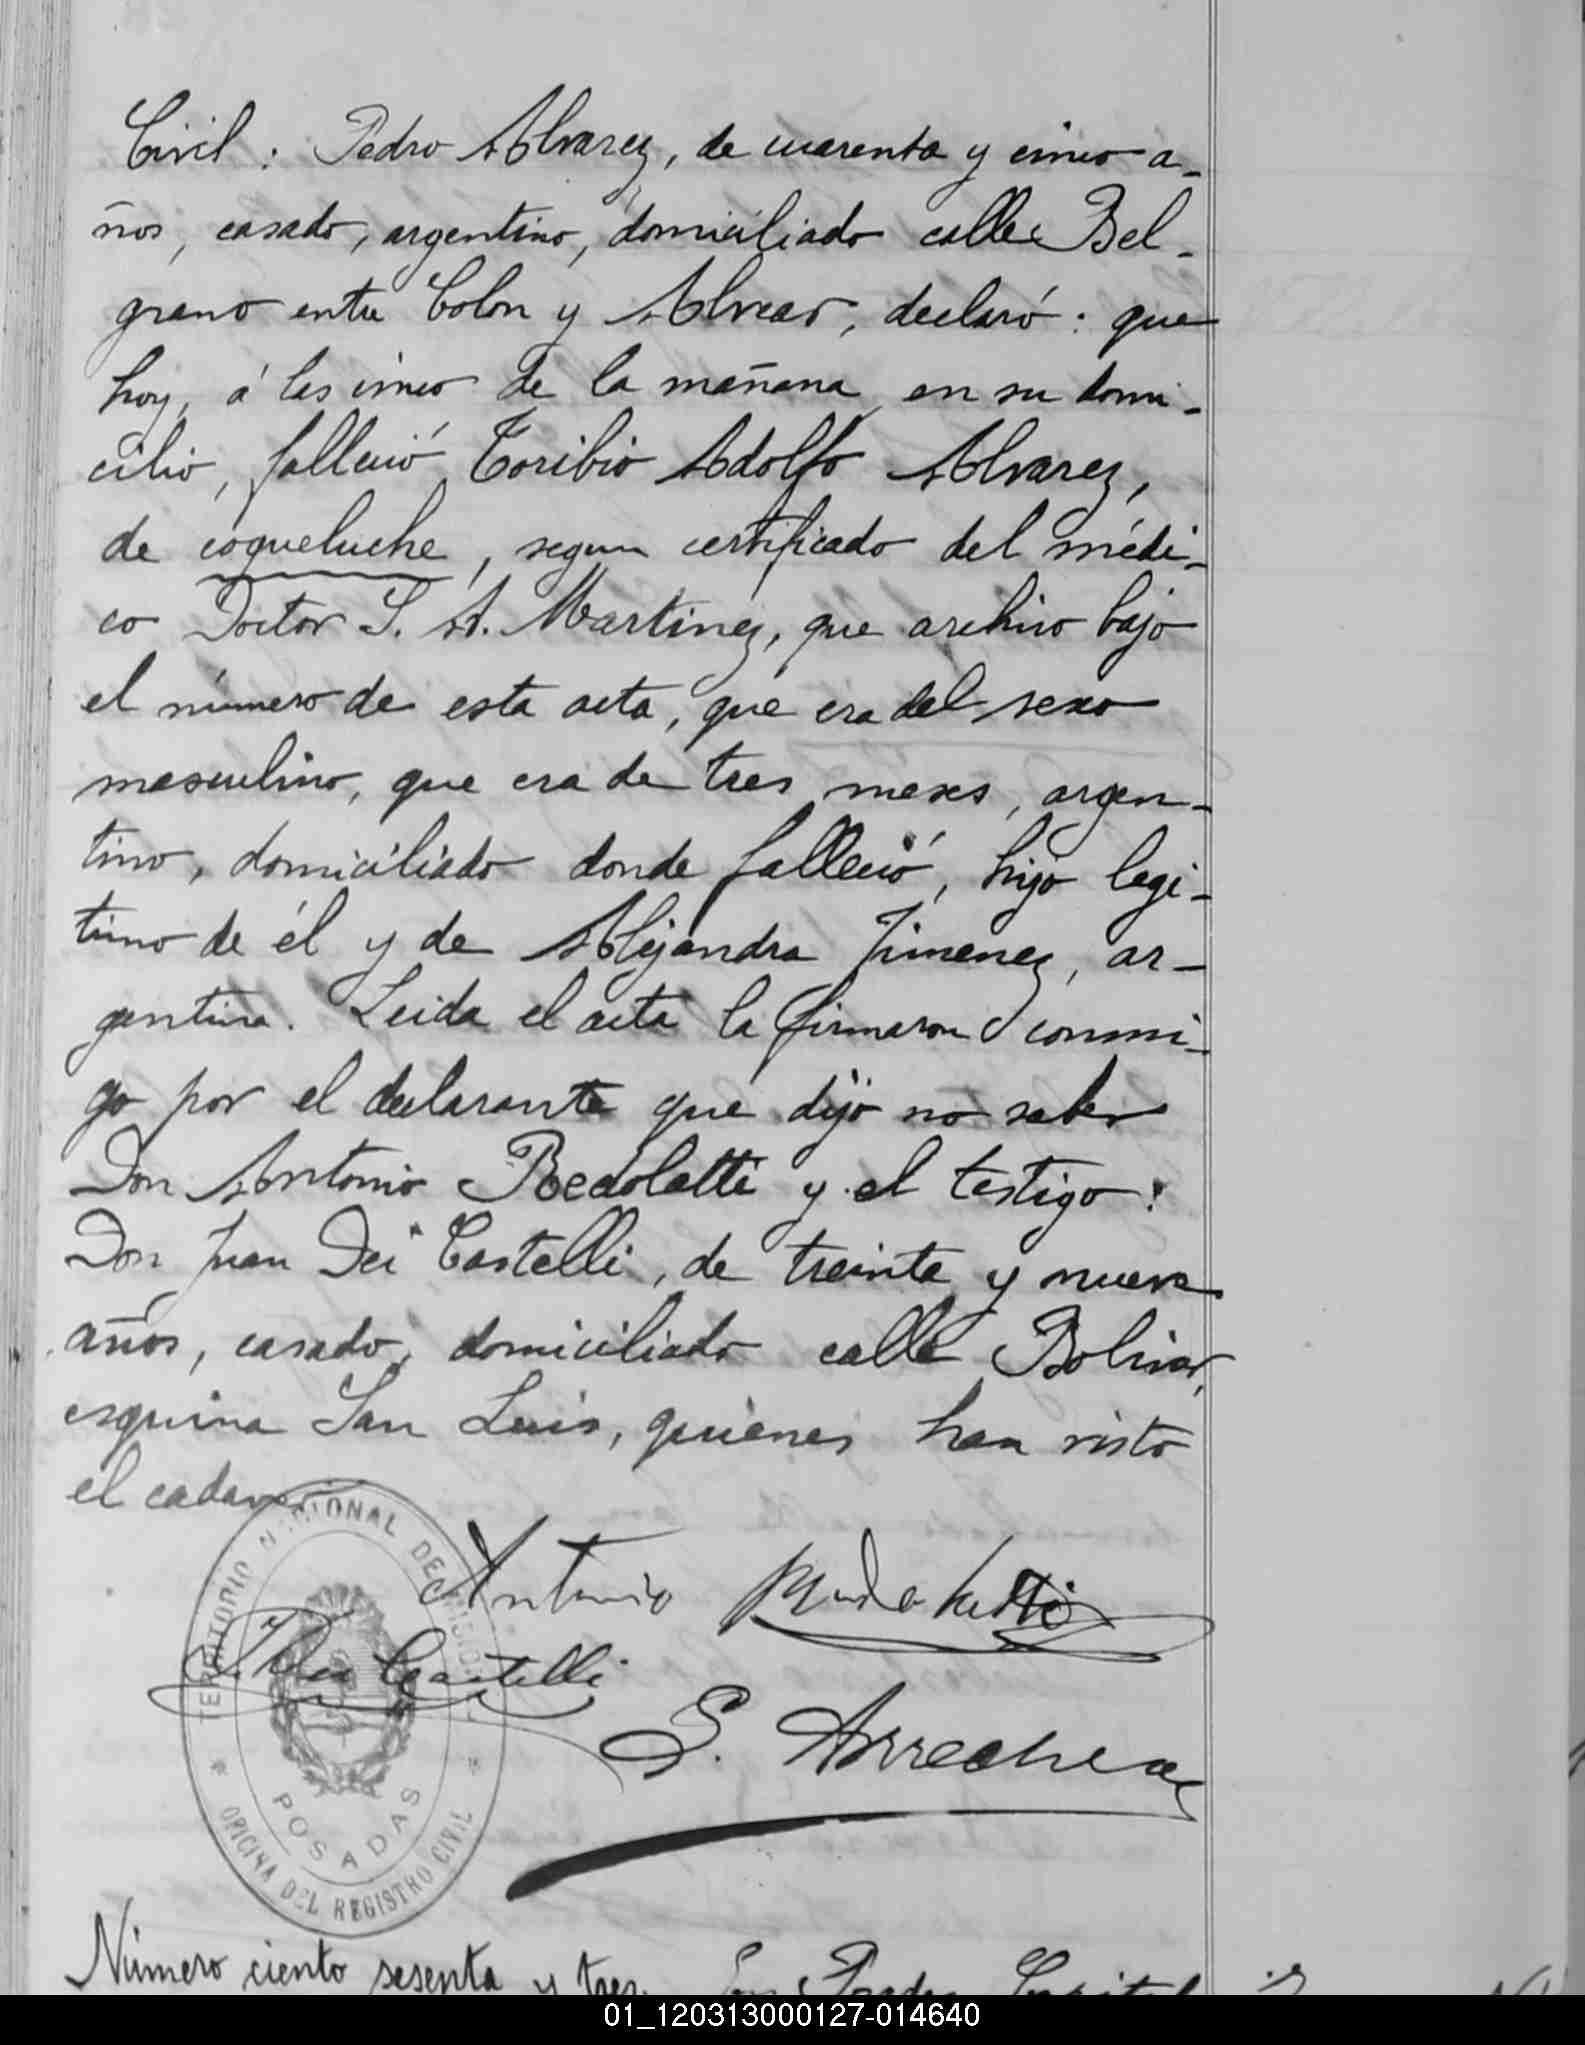 Civil: Pedro Alvarez, de cuarenta y cinco a-
ños, casado, argentino, domiciliado calle Bel-
grano entre Colon y Alvear, declaró: que
hoy, á las cinco de la mañana en su domi-
cilio, falleció Toribio Adolfo Alvarez,
de coqueluche, segun certificado del médi-
co Doctor S. A. Martinez, que archivo bajo
el número de esta acta, que era del sexo
masculino, que era de tres meses, argen-
tino, domiciliado donde falleció, hijo legi-
timo de él y de Alejandra Jimenez, ar-
gentina. Leida el acta la firmaron conmi-
go por el declarante que dijo no saber
Don Antonio y el testigo:
Don Juan Dei Castelli, de treinta y nueve
años, casado, domiciliado calle Bolivar,
esquina San Luis, quienes han visto
el cadaver.
Antonio
Dei Castelli
S. Arrechea
TERRITORIO NACIONAL DE MISIONES
POSADAS
OFICINA DEL REGISTRO CIVIL
Número ciento sesenta y tres. En Posadas Capital
01_120313000127-014640